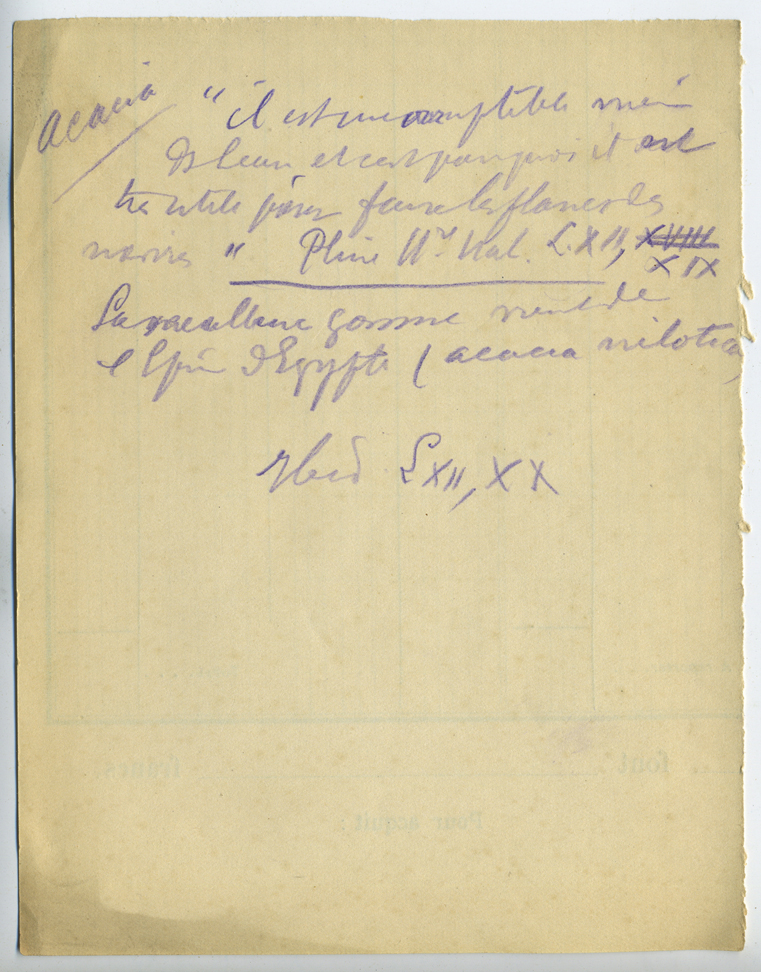 acacia
" il est incorruptible même
Ds l'eau et c'est pourquoi il est
très utile pour faire les flancs des
navires " Pline Hre Nat. L. XII, XVIII
XIX
La meilleure gomme vient de
l'Epine d'Egypte ( acacia nilotica
Ibid L XII, XX
.. font
francs
Pour acquit